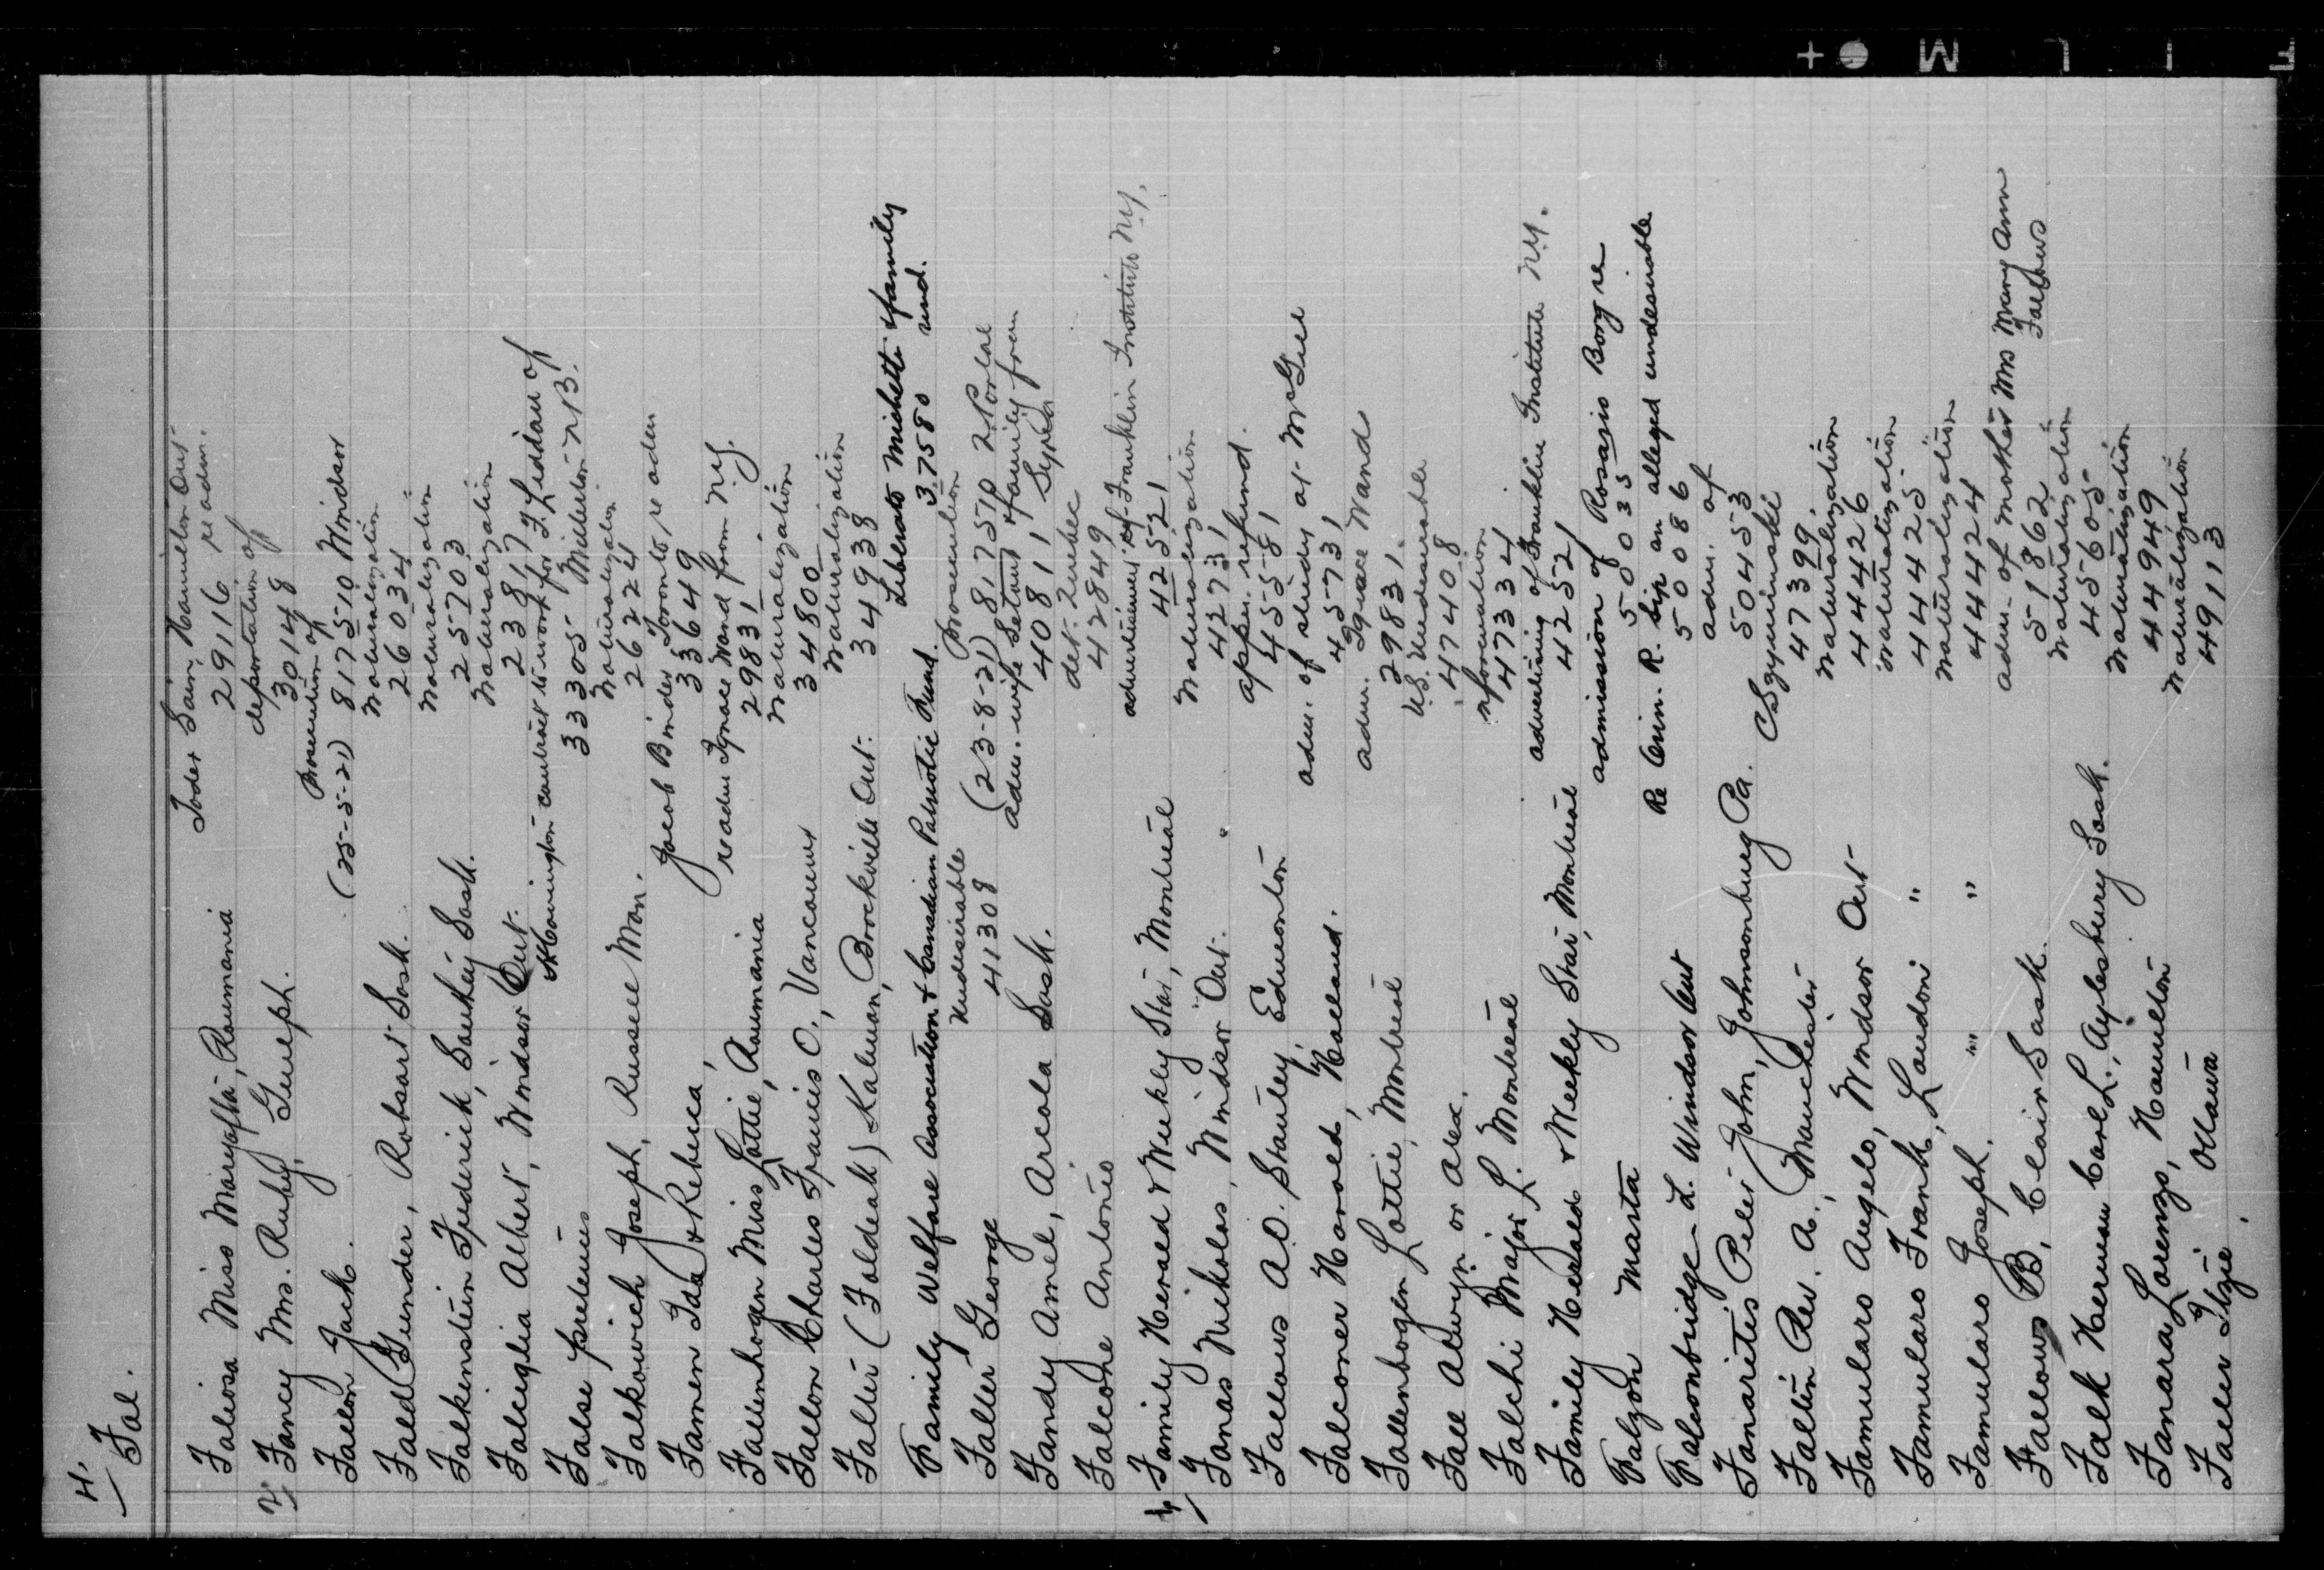 4.
Fal.
Faliosa Miss Maryasha, Roumania
Toder Sain, Hamilton Ont. re adm.
29116
Fancy Mrs. Ruby, Guelph.
deportation of
30148
Fallon Jack.
Prosecution of
(25-5-21) 817510 Windsor
Fald Gunder, Robsart Sask.
Naturalization
26034
Falkenstein Frederick, Sask.
Naturalization
25703
Falciglia Albert, Windsor Ont.
Naturalization
23817
False pretences
contract to work for F. Liddau of
33305 Millerton N.B.
Falkowich Joseph, Russell Man.
Naturalization
26224
Famen Ida & Rebecca,
Jacob Binder Toronto, re adm
33649
Fallenhogen Miss Lottie, Roumania
readm Ignace Wand from N.Y.
29831
Fallon Charles Francis O., Vancouver
Naturalization
34800
Falter (Faldeak) Kalman, Brockville Ont.
Naturalization
34938
Family Welfare Association & Canadian Patriotic Fund.
Liberato Michetti & family
37580 und.
Faller George
Undesirable
41308
Prosecution
(23-8-21) 817510 N. Portal
Fandy Amel, Arcola Sask.
adm. wife & family from
40811 Syria
Falcone Antonio
det. Quebec
42849
Family Herald & Weekly Star, Montreal
advertisement of Franklin Institute N.Y.
42521
Fanas Nikolas, Windsor Ont.
Naturalization
42731
Fallows A.O. Stanley, Edmonton
appln. refund.
45581
Falconer Harold, Holland.
adm. of study at McGill
45731
Fallenbogen Lottie, Montreal
adm. Ignace Wand
29831.
Fall Alwyn or Alex.
U.S. Undesirable
47408
Falchi Major L. Montreal
information
47334
Family Herald & Weekly Star, Montreal
advertising of Franklin Institute N.Y.
42521
Falzon Marta
admission of Rosario Borg re
50035
Falconbridge L. Windsor Ont
Re Crim. R. Sip an alleged undesirable
50086
Fansaritis Peter John, Johnsonburg Pa.
adm. of
50453
Faltin Rev. A., Manchester
47399
Famularo Angelo, Windsor Ont
Naturalization
44426
Famularo Frank, London "
Naturalization
44425
Famularo Joseph. " "
Naturalization
44424
Fallows B, Clair Sask.
adm. of mother Mrs Mary Ann
Fallows
51862
Falk Herman Carl L., Aylesbury Sask.
Naturalization
45605
Fanara Lorenzo, Hamilton
Naturalization
44949
Faller Itzie, Ottawa
Naturalization
49113
F I L M +